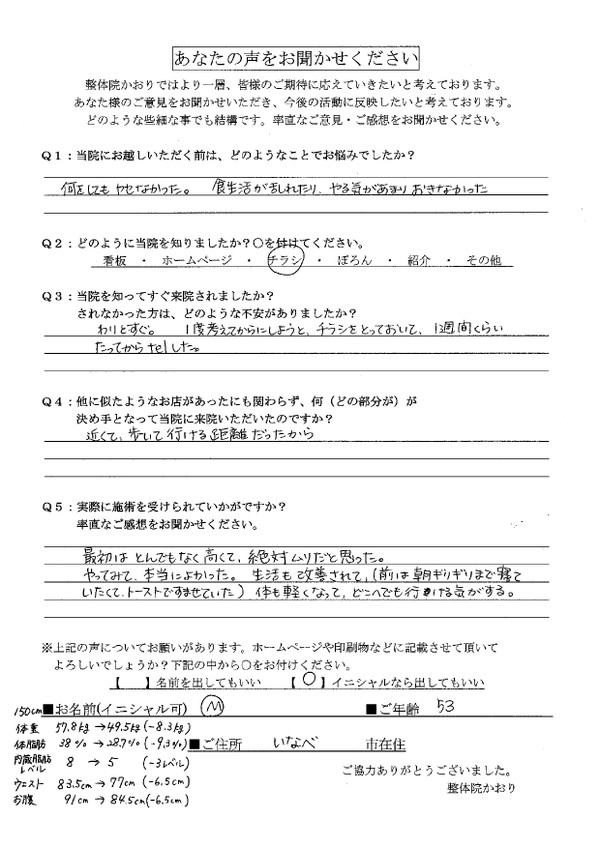 あなたの声をお聞かせください
整体院かおりではより一層、皆様のご期待に応えていきたいと考えております。
あなた様のご意見をお聞かせいただき、今後の活動に反映したいと考えております。
どのような些細な事でも結構です。率直なご意見・ご感想をお聞かせください。
Q1：当院にお越しいただく前は、どのようなことでお悩みでしたか？
何をしてもヤセなかった。 食生活が乱れたり、やる気があまりおきなかった
Q2：どのように当院を知りましたか？○を付けてください。
看板 ・ ホームページ ・ チラシ ・ ぽろん ・ 紹介 ・ その他
Q3：当院を知ってすぐ来院されましたか？
されなかった方は、どのような不安がありましたか？
わりとすぐ。 1度考えてからにしようと、チラシをとっておいて、1週間くらい
たってからtelした。
Q4：他に似たようなお店があったにも関わらず、何（どの部分が）が
決め手となって当院に来院いただいたのですか？
近くて、歩いて行ける距離だったから
Q5：実際に施術を受けられていかがですか？
率直なご感想をお聞かせください。
最初はとんでもなく高くて、絶対ムリだと思った。
やってみて、本当によかった。 生活も改善されて、(前は朝ギリギリまで寝て
いたくて、トーストですませていた) 体も軽くなって、どこへでも行ける気がする。
※上記の声についてお願いがあります。ホームページや印刷物などに記載させて頂いて
よろしいでしょうか？下記の中から○をお付けください。
【 】名前を出してもいい 【○】イニシャルなら出してもいい
150cm ■お名前(イニシャル可) M ■ご年齢 53
体重 57.8kg→49.5kg(-8.3kg)
体脂肪 38%→28.7%(-9.3%) ■ご住所 いなべ 市在住
内蔵脂肪レベル 8 → 5 (-3レベル)
ご協力ありがとうございました。
ウェスト 83.5cm→77cm(-6.5cm)
整体院かおり
お腹 91cm→84.5cm(-6.5cm)